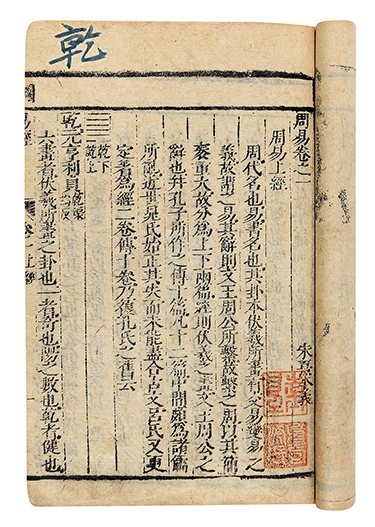 乾
周易卷之一
宋朱熹本義
周易上經
周代名也易書名也其卦本伏羲所畫有交易變易之
義故謂之易其辭則文王周公所繫故繫之周以其簡
袠重大故分爲上下兩篇經則伏羲之畫文王周公之
辭也并孔子所作之傳十篇凡十二篇中間頗爲諸儒
所亂近世晁氏始正其失而未能盡合古文呂氏又更
定著爲經二卷傳十卷乃復孔氏之舊云
乾下
乾上
乾元亨利貞
六畫者伏羲所畫之卦也一者奇也陽之數也乾者健也
易經
卷一上經